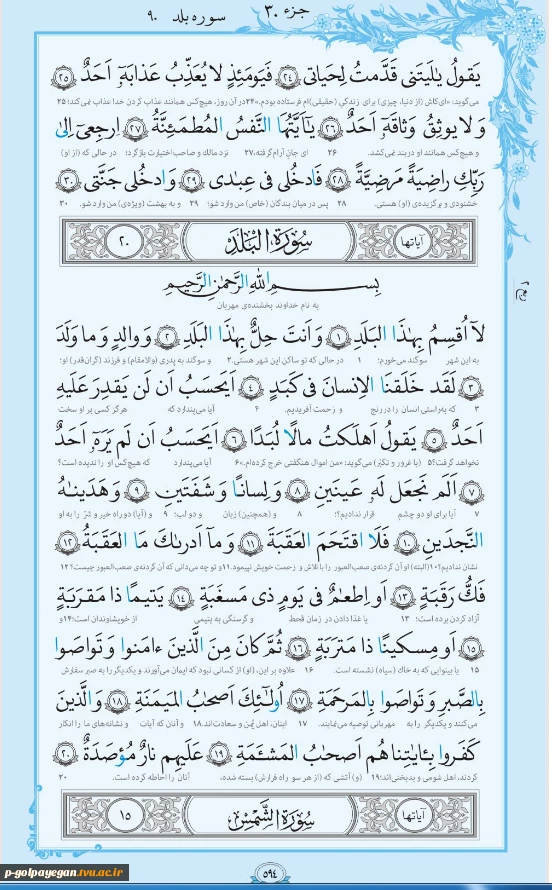 جزء ۳۰ سوره بلد ۹۰
يَقولُ يٰلَيتَنى قَدَّمتُ لِحَياتى ﴿۲۴﴾ فَيَومَئِذٍ لا يُعَذِّبُ عَذابَهٓ اَحَدٌ ﴿۲۵﴾
می‌گوید: «ای‌کاش (از دنیا، چیزی) برای زندگیِ (حقیقی)‌ام فرستاده بودم.»۲۴ در آن روز، هیچ‌کس همانند عذاب کردن خدا عذاب نمی‌کند؛ ۲۵
وَ لا يوثِقُ وَثاقَهٓ اَحَدٌ ﴿۲۶﴾ يٰاَيَّتُهَا النَّفسُ المُطمَئِنَّةُ ﴿۲۷﴾ اِرجِعى اِلىٰ
و هیچ‌کس همانند او دربند نمی‌کشد. ۲۶ ای جانِ آرام گرفته،۲۷ نزد مالک و صاحب‌اختیارت بازگرد؛ در حالی که (از او)
رَبِّكِ راضِيَةً مَرضِيَّةً ﴿۲۸﴾ فَادخُلى فى عِبٰدى ﴿۲۹﴾ وَ ادخُلى جَنَّتى ﴿۳۰﴾
خشنودی و برگزیده‌ی (او) هستی. ۲۸ پس در میان بندگان (خاص) من وارد شو؛ ۲۹ و به بهشت (ویژه‌ی) من وارد شو. ۳۰
آیاتها سُورَةُ البَلَد ۲۰
بِسمِ اللهِ الرَّحمٰنِ الرَّحيمِ
به نام خداوند بخشنده‌ی مهربان
لآ اُقسِمُ بِهٰذَا البَلَدِ ﴿۱﴾ وَ اَنتَ حِلٌّ بِهٰذَا البَلَدِ ﴿۲﴾ وَ والِدٍ وَ ما وَلَدَ
به این شهر سوگند می‌خورم؛ ۱ در حالی که تو ساکن این شهر هستی.۲ و سوگند به پدری (والامقام) و فرزند (گران‌قدر) او؛
﴿۳﴾ لَقَد خَلَقنَا الاِنسانَ فى كَبَدٍ ﴿۴﴾ اَيَحسَبُ اَن لَن يَقدِرَ عَلَيهِ
۳ که به‌راستی انسان را در رنج و زحمت آفریدیم. ۴ آیا می‌پندارد که هرگز کسی بر او سخت
اَحَدٌ ﴿۵﴾ يَقولُ اَهلَكتُ مالًا لُبَدًا ﴿۶﴾ اَيَحسَبُ اَن لَم يَرَهٓ اَحَدٌ
نخواهد گرفت؟۵ (با غرور و تکبّر) می‌گوید: «من اموال هنگفتی خرج کرده‌ام.»۶ آیا می‌پندارد که هیچ‌کس او را ندیده است؟
﴿۷﴾ اَلَم نَجعَل لَهٗ عَينَينِ ﴿۸﴾ وَ لِسانًا وَ شَفَتَينِ ﴿۹﴾ وَ هَدَينٰهُ
۷ آیا برای او دو چشم قرار ندادیم؟؛ ۸ و (همچنین) زبان و دو لب؛ ۹ و (آیا) دو راه خیر و شرّ را به او
النَّجدَينِ ﴿۱۰﴾ فَلَا اقتَحَمَ العَقَبَةَ ﴿۱۱﴾ وَ مآ اَدرىٰكَ مَا العَقَبَةُ ﴿۱۲﴾
نشان ندادیم؟۱۰ (البته) او آن گردنه‌ی صعب‌العبور را با تلاش و زحمت خویش نپیمود.۱۱ و تو چه می‌دانی که آن گردنه‌ی صعب‌العبور چیست؟ ۱۲
فَكُّ رَقَبَةٍ ﴿۱۳﴾ اَو اِطعٰمٌ فى يَومٍ ذى مَسغَبَةٍ ﴿۱۴﴾ يَتيمًا ذا مَقرَبَةٍ
آزاد کردن برده است؛ ۱۳ یا غذا دادن در زمان قحط و گرسنگی به یتیمی از خویشاوندان است؛۱۴ و
﴿۱۵﴾ اَو مِسكينًا ذا مَترَبَةٍ ﴿۱۶﴾ ثُمَّ كانَ مِنَ الَّذينَ ءامَنوا وَ تَواصَوا
۱۵ یا بینوایی که به خاک (سیاه) نشسته است. ۱۶ علاوه بر این، (او) از کسانی نبود که ایمان می‌آورند و یکدیگر را به صبر سفارش
بِالصَّبرِ وَ تَواصَوا بِالمَرحَمَةِ ﴿۱۷﴾ اُولٰٓئِكَ اَصحٰبُ المَيمَنَةِ ﴿۱۸﴾ وَ الَّذينَ
می‌کنند و یکدیگر را به مهربانی توصیه می‌نمایند. ۱۷ اینان، اهل یُمن و سعادت‌اند.۱۸ و آنان که آیات و نشانه‌های ما را انکار
كَفَروا بِـٔايٰتِنا هُم اَصحٰبُ المَشـَٔمَةِ ﴿۱۹﴾ عَلَيهِم نارٌ مُؤصَدَةٌ ﴿۲۰﴾
کردند، اهل شومی و بدبختی‌اند؛۱۹ (و) آتشی که (از هر سو راه فرارش) بسته شده، آنان را احاطه کرده است. ۲۰
آیاتها سُورَةُ الشَّمْس ۱۵
۵۹۴
p-golpayegan.tvu.ac.ir